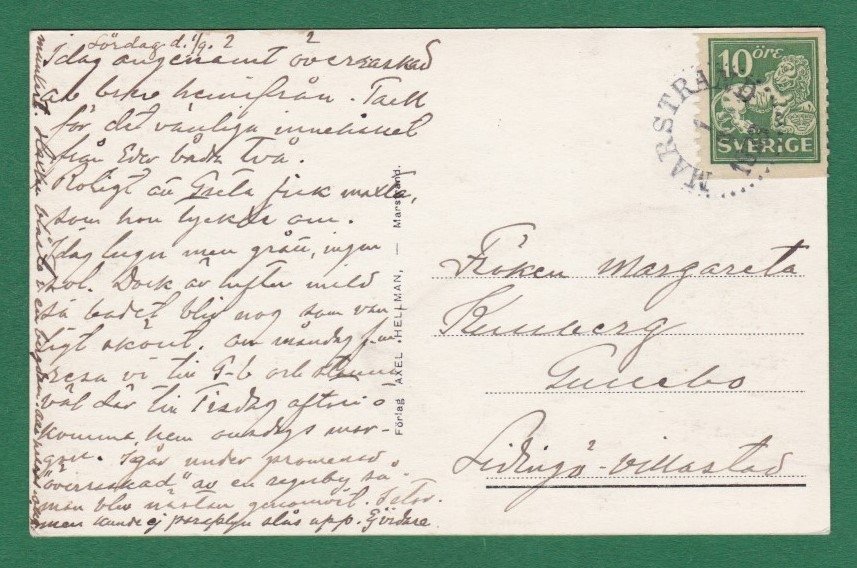 Lördag d. 1/9. 2
Idag angenämt överraskad
av brev hemifrån. Tack
för det vänliga innehållet
från Eder båda två.
Roligt att Greta fick
som hon tyckte om.
Idag lugn men grått, ingen
sol. Dock är luften mild
så badet blir nog som van
ligt skönt. Om måndag f.m
resa vi till G-b och stanna
väl där till Tisdag afton o
komma hem onsdags mor-
gon. Igår under promenad
"överraskad" av en regnby så
man blev nästan genomvåt. Fetor.
men kunde ej paraplyn slås upp. Ej vidare
Förlag AXEL HELLMAN, — Marstrand.
MARSTRAND
10 ÖRE
SVERIGE
Fröken Margareta
Kumberg
Gunnebo
Lidingö-Villastad